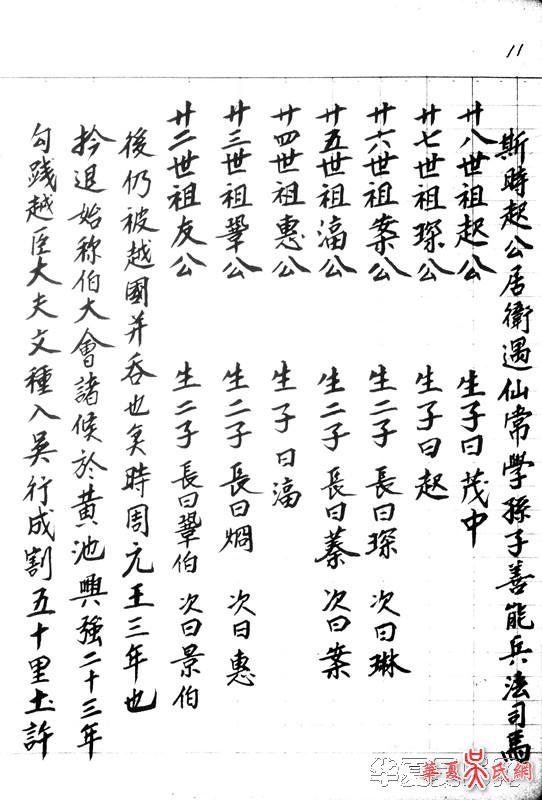 11
勾踐越臣大夫文種入吳行成割五十里土許
矜退始称伯大會諸候於黃池興強二十三年
後仍被越國并吞也矣時周元王三年也
廿二世祖友公 生二子 長曰鞏伯 次曰景伯
廿三世祖鞏公 生二子 長曰焵 次曰惠
廿四世祖惠公 生子曰滆
廿五世祖滆公 生二子 長曰蓁 次曰案
廿六世祖案公 生二子 長曰琛 次曰琳
廿七世祖琛公 生子曰起
廿八世祖起公 生子曰茂中
斯時起公居衛遇仙常學孫子善能兵法司馬
華夏吳氏網